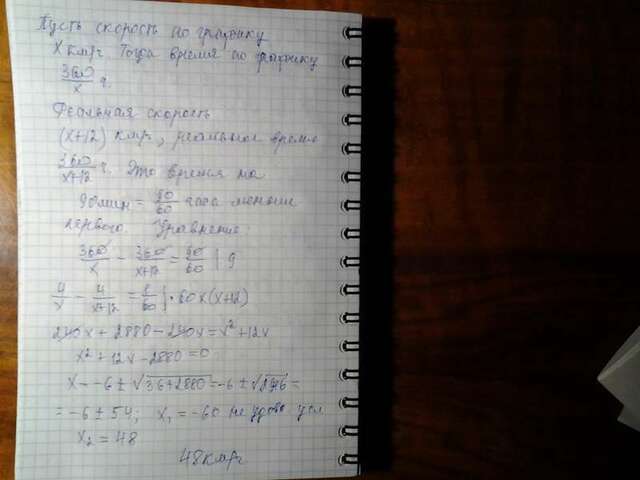 Пусть скорость по графику
X км/ч. Тогда время по графику
360/x ч.
Реальная скорость
(x+12) км/ч, реальное время
360/x+12 ч. Это время на
90 мин = 90/60 часа меньше
первого. Уравнение:
360/x - 360/x+12 = 90/60 | 9
4/x - 4/x+12 = 1/60 | • 60x(x+12)
240x + 2880 - 240x = x² + 12x
x² + 12x - 2880 = 0
x = -6 ± √36+2880 = -6 ± √2916 =
= -6 ± 54; x₁ = -60 не удовл. усл.
x₂ = 48
48 км/ч